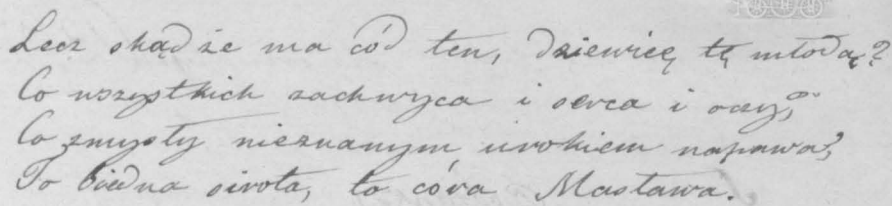 Lecz skądże ma cód ten, dziewicę tę młodą?
Co wszystkich zachwyca i serca i oczy,
Co zmysły nieznanym urokiem napawa,
To biedna sirota, to córa Masława.